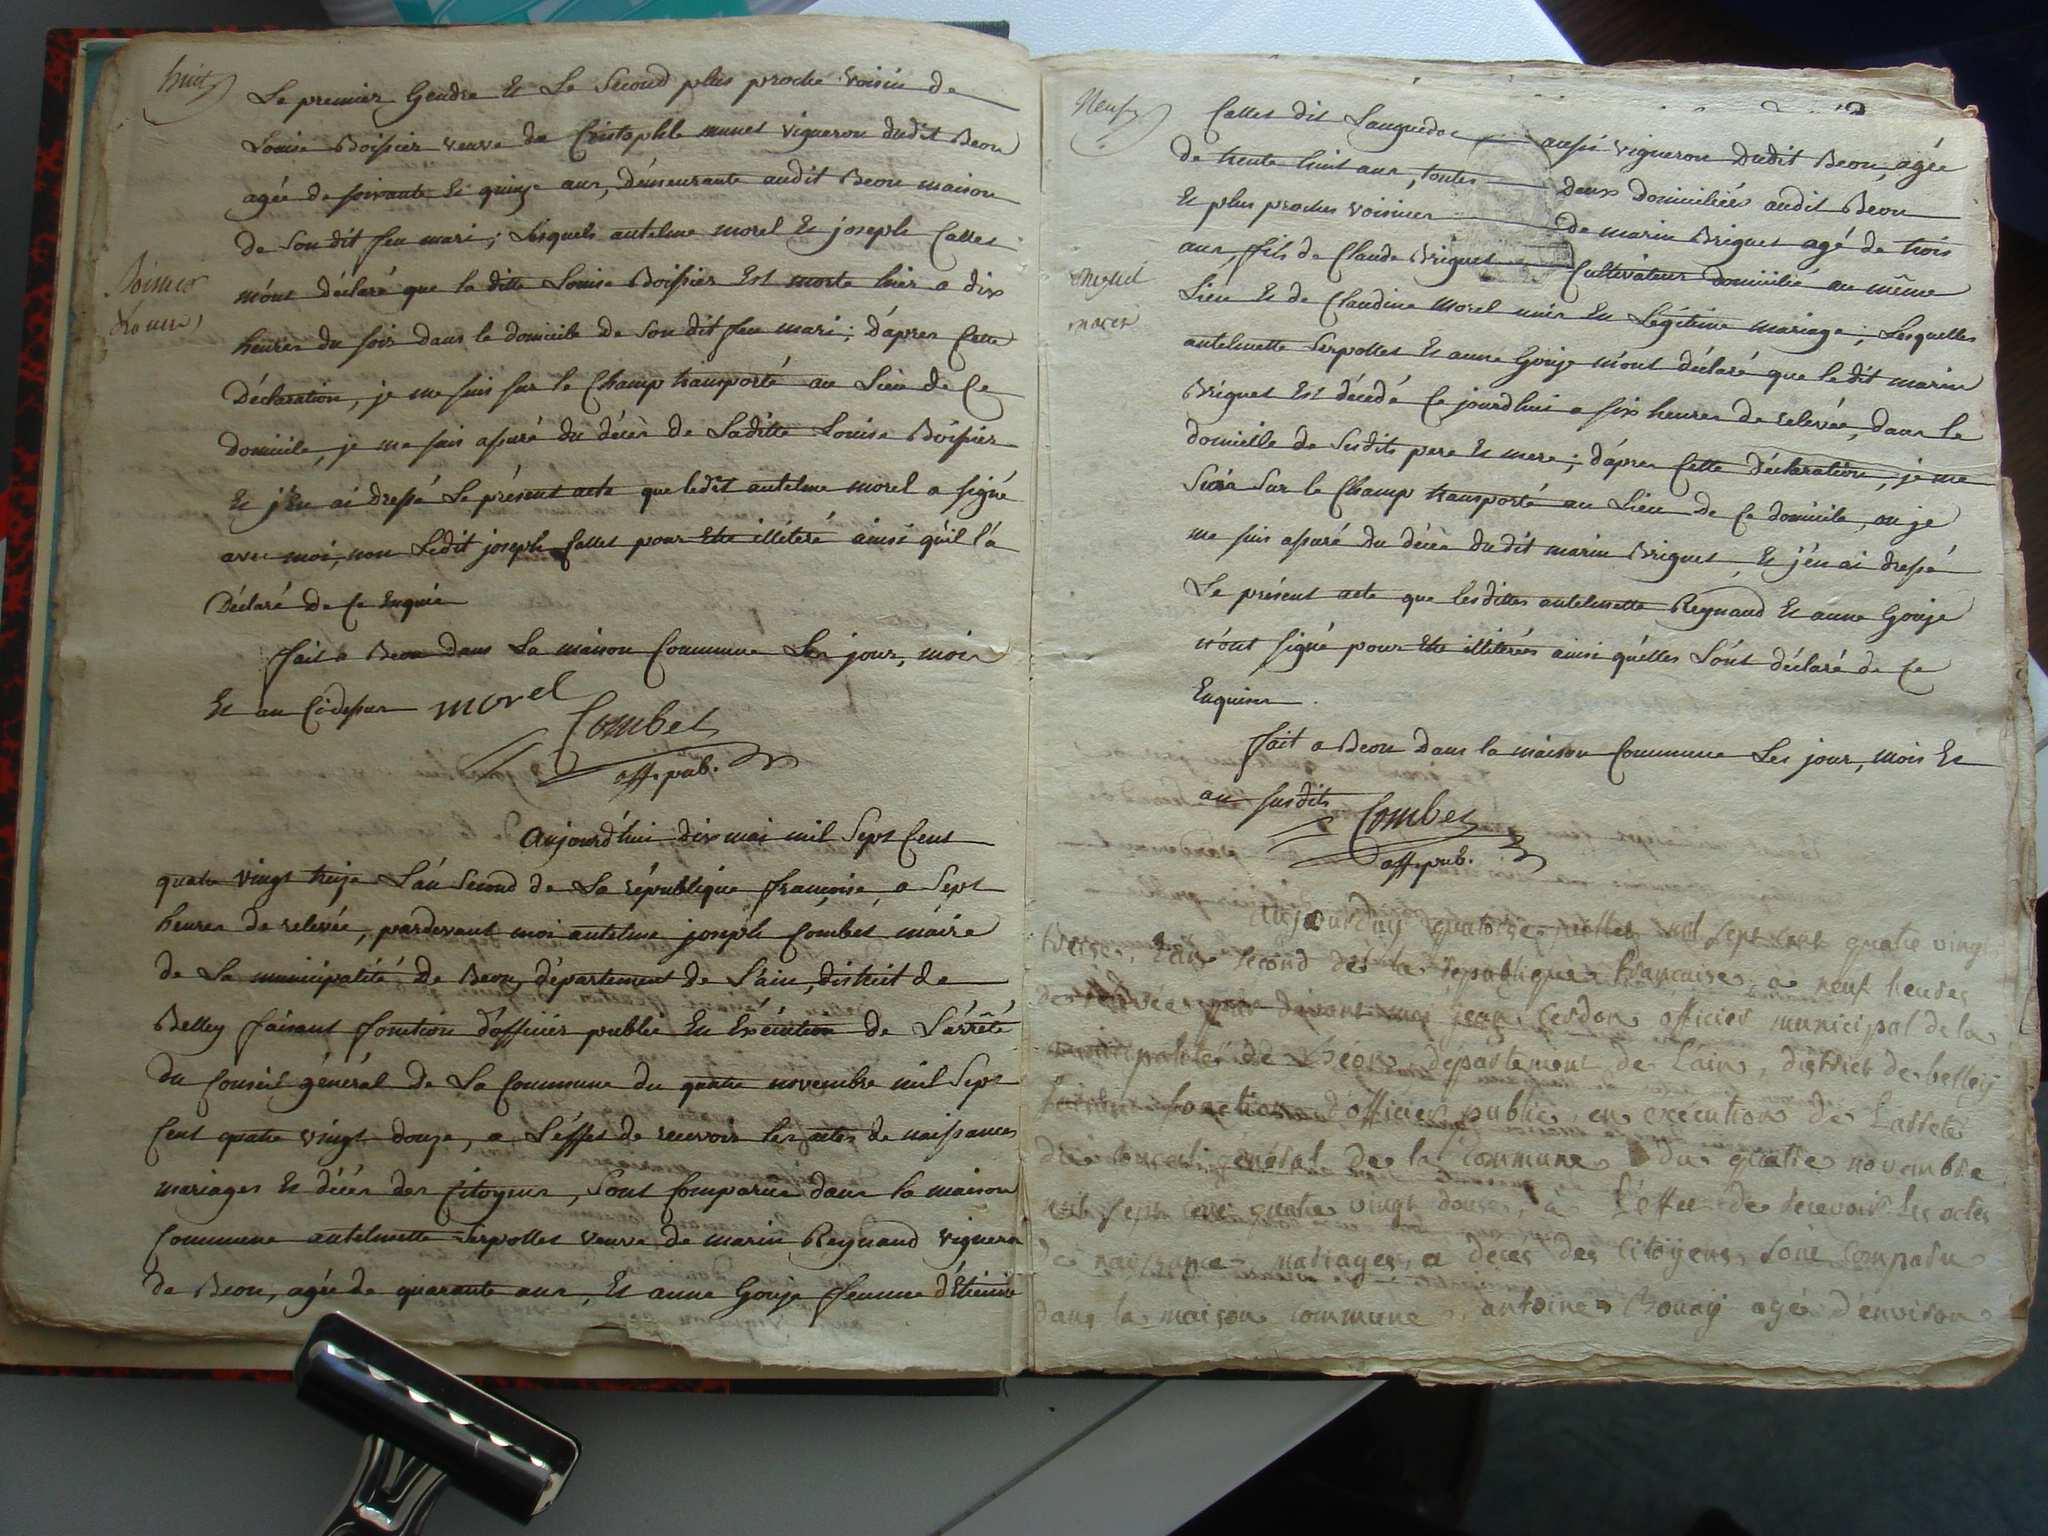 huit
Le premier Gendre Et Le Second plus proche voisin de
Louise Boissier veuve de Cristophle munet vigneron dudit Beon
agée de soixante Et quinze ans, démeurante audit Beon maison
de Son dit feu mari ; Lesquels antelme morel Et joseph Callet
Boissier
Louise
m'ont déclaré que la ditte Louise Boissier Est morte hier a dix
heures du soir dans le domicile de Son dit feu mari ; d'après Cette
Déclaration, je me suis sur le Champ transporté au Lieu de Ce
domicile, je me suis assuré du décès de Laditte Louise Boissier
Et j'En ai dressé Le présent acte que ledit antelme morel a signé
avec moi, non Ledit joseph Callet pour Etre illétéré ainsi qu'il l'a
Déclaré de Ce Enquis
fait a Beon dans La maison Commune Les jour, mois
Et an Cidessus morel
Combet
off. pub.
Aujourd'hui dix mai mil Sept Cent
quatre vingt treize L'an Second de La république francoise, a Sept
heures de relevée, pardevant moi antelme joseph Combet maire
de La municipalité de Beon, département de L'ain, district de
Belley faisant fonction d'officier public En Exécution de L'arrêté
du Conseil général de La Commune du quatre novembre mil Sept
Cent quatre vingt douze, a L'effet de recevoir les actes de naissances
mariages Et décès des Citoyens, Sont Comparues dans la maison
Commune antelmette Serpollet veuve de marin Reynaud vigneron
de Beon, agée de quarante ans, Et anne Gouje femme d'Etienne
Neuf
Callet dit Languedoc aussi vigneron dudit Beon, agée
de trente huit ans, toutes deux domiciliées audit Beon
Et plus proches voisines de marin Briguet agé de trois
ans, fils de Claude Briguet Cultivateur domicilié au même
Lieu Et de Claudine morel unis En Légitime mariage ; Lesquelles
antelmette Serpollet Et anne Gouje m'ont déclaré que le dit marin
Briguet Est décédé Ce jourdhui a six heures de relevée, dans le
domicille de Susdits pere Et mere ; d'après Cette déclaration, je me
Suis Sur le Champ transporté au Lieu de Ce domicile, ou je
me suis assuré du décès dudit marin Briguet, Et j'en ai dressé
Le présent acte que lesdittes antelmette Reynaud Et anne Gouje
n'ont signé pour Etre illitérées ainsi qu'elles L'ont déclaré de Ce
Enquises.
fait a Beon dans la maison Commune Les jour, mois Et
an susdits Combet
off. pub.
aujourduy quatorze juillet mil sept cent quatre vingt
treize, l'an second de la république francaise, a neuf heures
de relevée par devant moi jean Cerdon officier municipal de la
municipalité de Béon, département de L'ain, district de belley
faisant fonction d'officier public, en exécution de L'arreté
du conseil général de la commune du quatre novembre
mil sept cent quatre vingt douze, à L'effet de recevoir les actes
de naissance, mariages, a décés des Citoyens, sont comparu
dans la maison commune, antoine Bouay agé d'environ